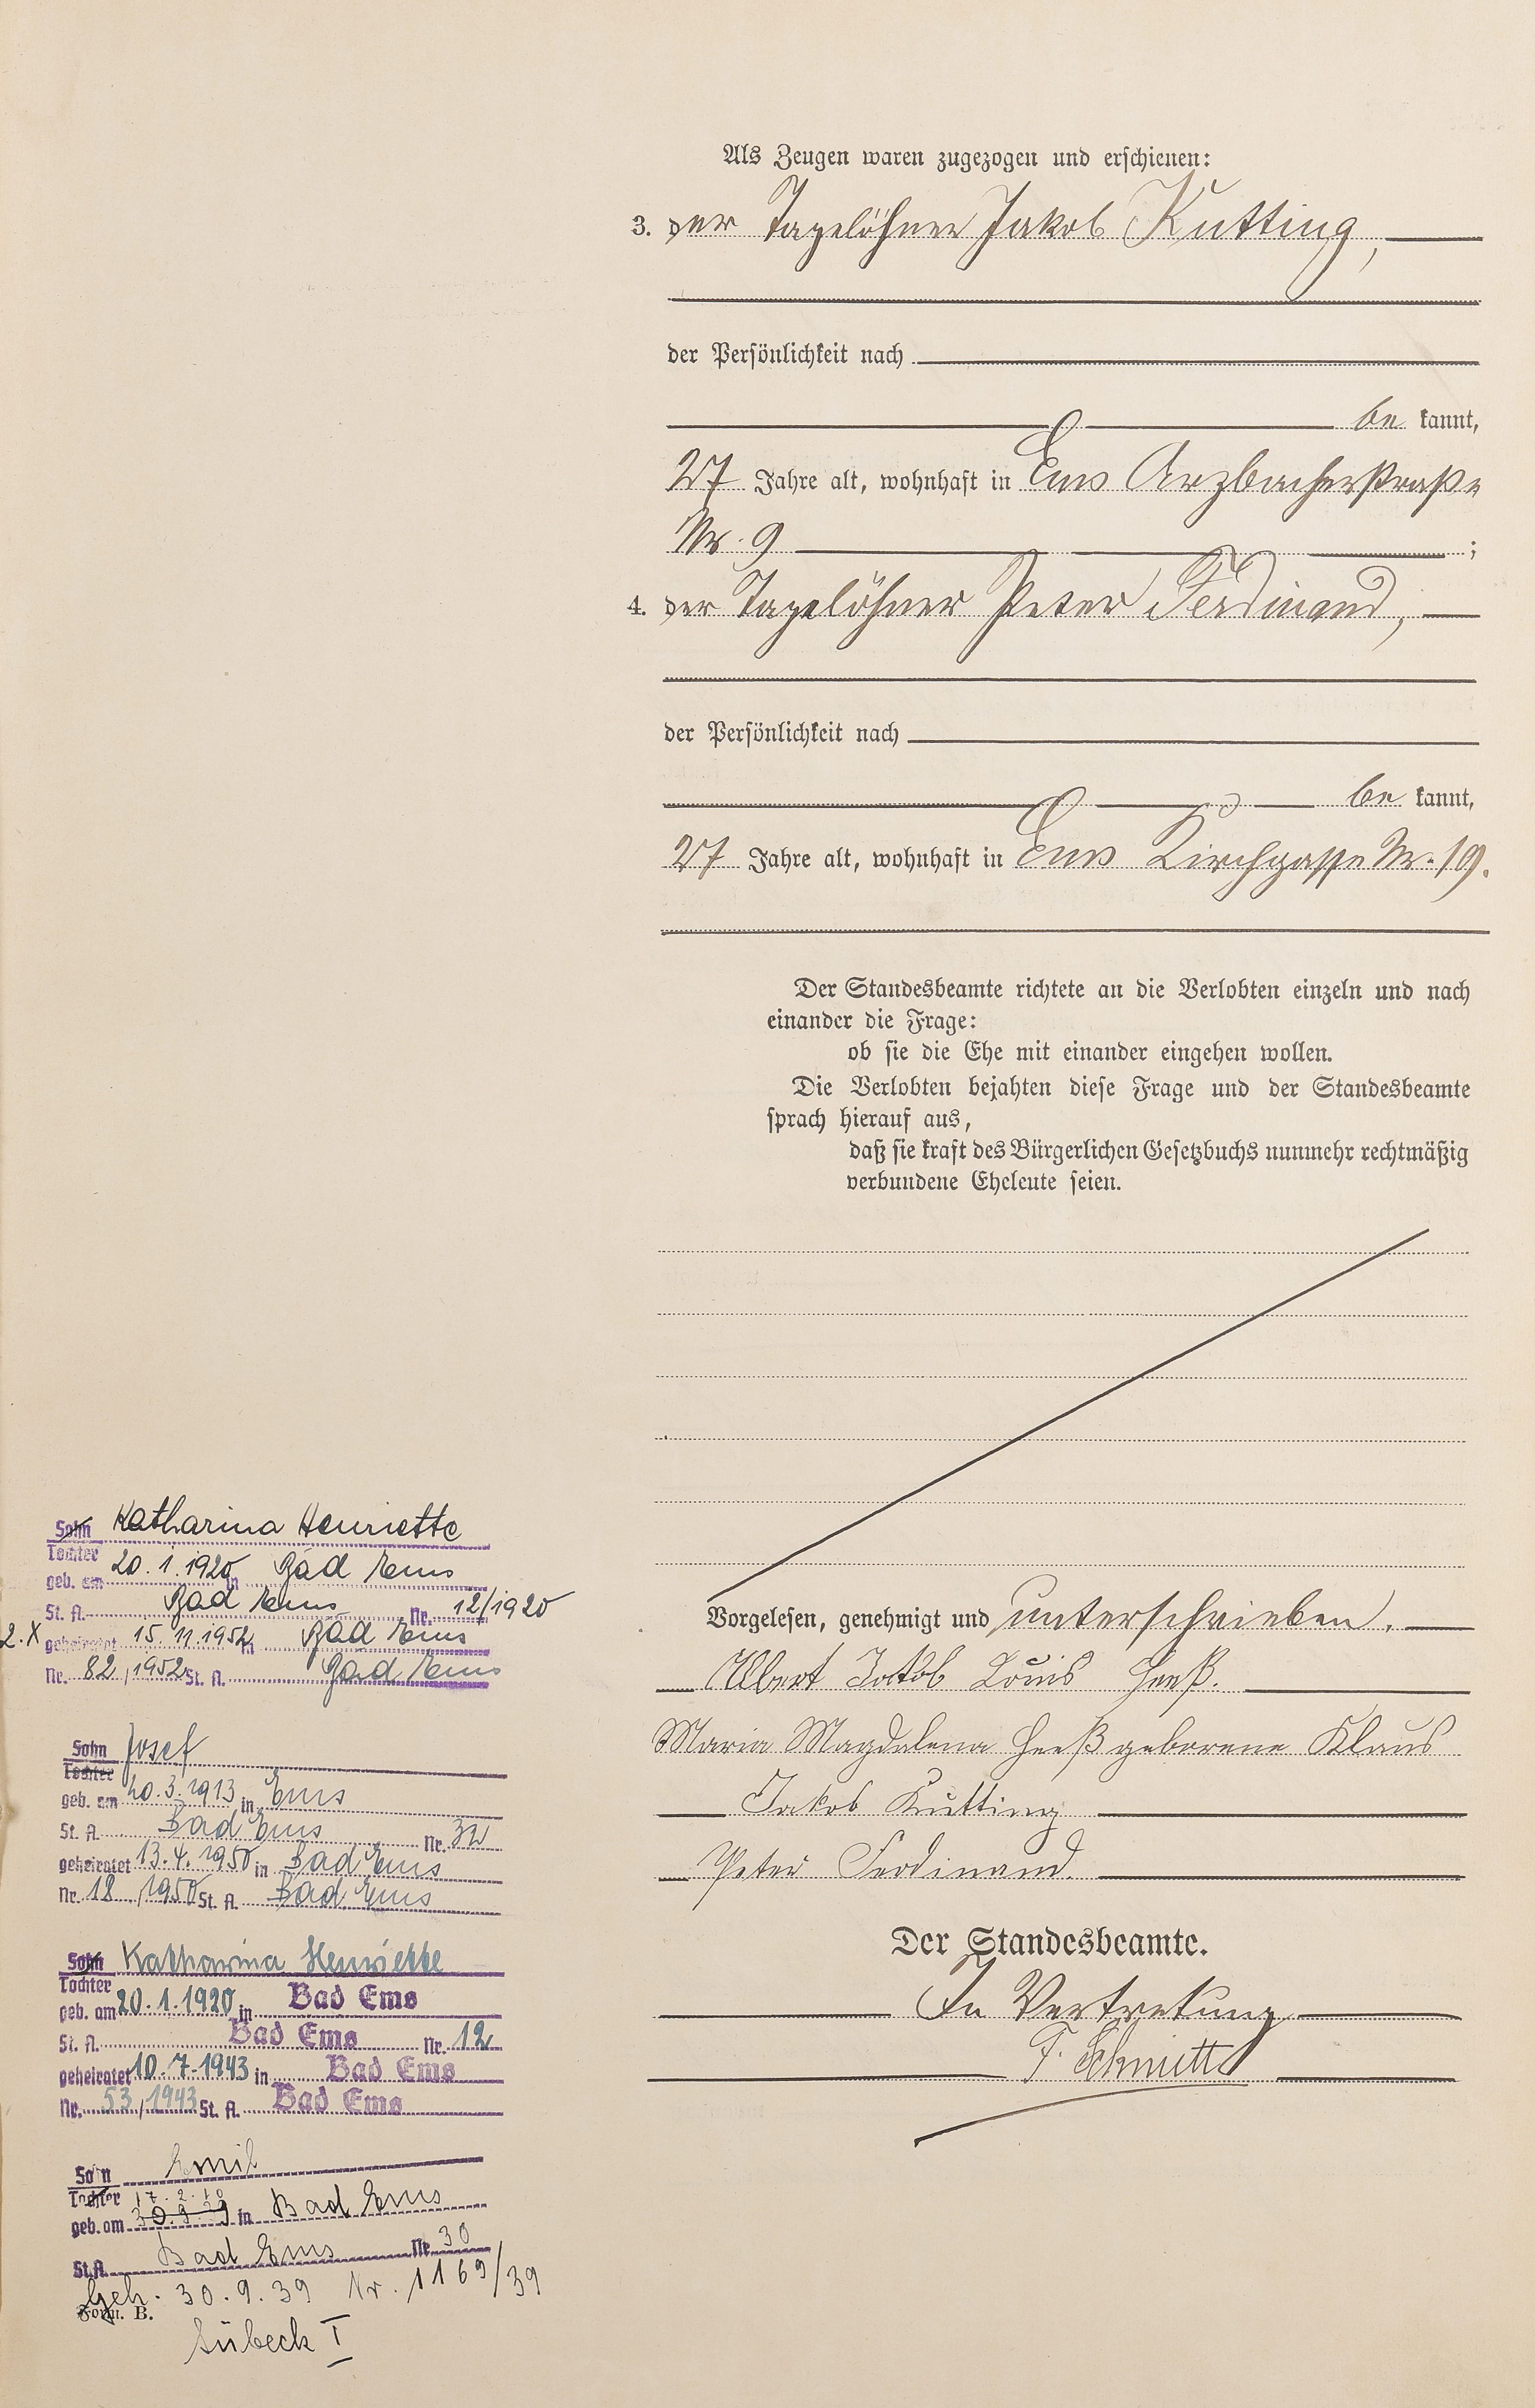 Als Zeugen waren zugezogen und erschienen:
3. der Tagelöhner Jakob Kutting,
der Persönlichkeit nach
be kannt,
27 Jahre alt, wohnhaft in Ems Arzbacherstraße
Nr. 9 ;
4. der Tagelöhner Peter Ferdinand,
der Persönlichkeit nach
be kannt,
27 Jahre alt, wohnhaft in Ems Kirchgasse Nr. 19.
Der Standesbeamte richtete an die Verlobten einzeln und nach
einander die Frage:
ob sie die Ehe mit einander eingehen wollen.
Die Verlobten bejahten diese Frage und der Standesbeamte
sprach hierauf aus,
daß sie kraft des Bürgerlichen Gesetzbuchs nunmehr rechtmäßig
verbundene Eheleute seien.
Vorgelesen, genehmigt und unterschrieben.
Albert Jakob Louis Heeß.
Maria Magdalena Heeß geborene Klaus
Jakob Kutting
Peter Ferdinand.
Der Standesbeamte.
In Vertretung
F. Schmitt
Sohn Katharina Henriette
Tochter
geb. am 20.1.1920 in Bad Ems
St. A. Bad Ems Nr. 12/1920
2. X geheiratet 15.11.1952 in Bad Ems
Nr. 82/1952 St. A. Bad Ems
Sohn Josef
Tochter
geb. am 20.3.1913 in Ems
St. A. Bad Ems Nr. 32
geheiratet 13.4.1950 in Bad Ems
Nr. 18/1950 St. A. Bad Ems
Sohn Katharina Henriette
Tochter
geb. am 20.1.1920 in Bad Ems
St. A. Bad Ems Nr. 12
geheiratet 10.7.1943 in Bad Ems
Nr. 53/1943 St. A. Bad Ems
Sohn Emil
Tochter 17.2.10
geb. am 30.9.39 in Bad Ems
St. A. Bad Ems Nr. 30
Geh. 30.9.39 Nr. 1169/39
Form. B.
Lübeck I